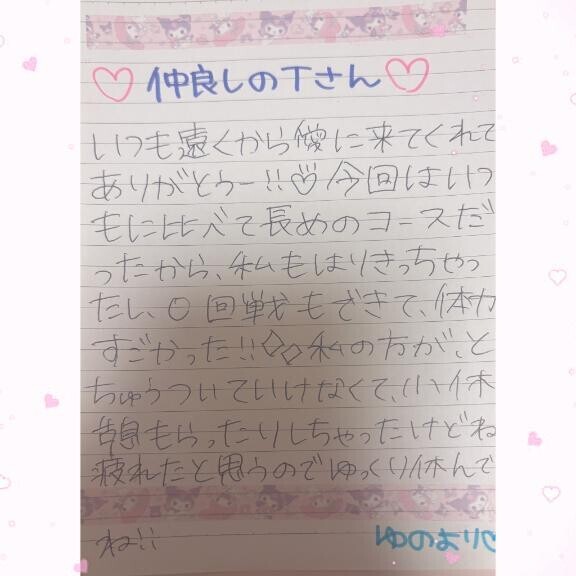 ♡仲良しのTさん♡
いつも遠くから僾に来てくれて
ありがとうー!!♡今回はいつ
もに比べて長めのコースだ
ったから、私もはりきっちゃっ
たし、〇回戦もできて、体力
すごかった!!◇◇私の方が、と
ちゅうついていけなくて、小休
憩もらったりしちゃったけどね
疲れたと思うのでゆっくり休んで
ね!!
ゆのより♡